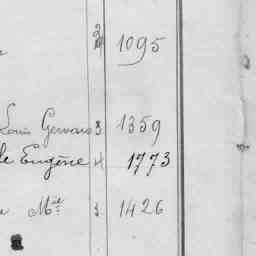 3 1095
Louis Gervais 3 1359
le Eugène 4 1773
Mme 3 1426